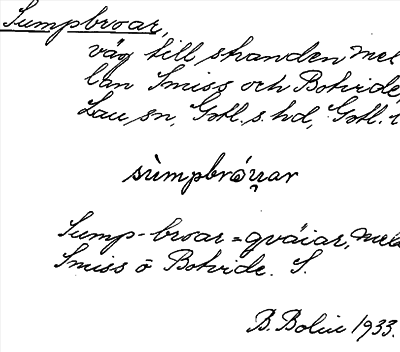 Sumpbroar,
väg till stranden mel
lan Smiss och Botvide,
Lau sn, Gotl. s. hd, Gotl. l
sùmpbróu̯ar
Sump-broar = gväiar, mell
Smiss o Botvide. S.
B. Bolin 1933.